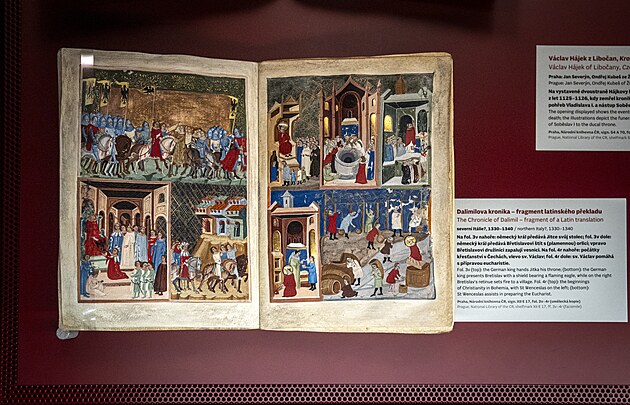 Václav Hájek z Libočan, Kro
Václav Hájek of Libočany, Cz
Praha: Jan Severýn, Ondřej Kubeš ze Ž
Prague: Jan Severýn, Ondřej Kubeš of Ž
Na vystavené dvoustraně Hájkovy
z let 1125–1126, kdy zemřel
pohřeb Vladislava I. a nástup Soběs
The opening displayed shows the event
death; the illustrations depict the funer
of Soběslav I to the ducal throne.
Praha, Národní knihovna ČR, sign.
Prague, National Library of the CR, shelfmark
Dalimilova kronika – fragment latinského překladu
The Chronicle of Dalimil – fragment of a Latin translation
severní Itálie?, 1330–1340 / northern Italy?, 1330–1340
Na fol. 3v nahoře: německý král předává Jitce svůj stolec; fol. 3v dole:
německý král předává Břetislavovi štít s (plamennou) orlicí; vpravo
Břetislavovi družiníci zapalují vesnici. Na fol. 4r nahoře: počátky
křesťanství v Čechách, vlevo sv. Václav; fol. 4r dole: sv. Václav pomáhá
s přípravou eucharistie.
Fol. 3v (top): the German king hands Jitka his throne; (bottom): the German
king presents Bretislav with a shield bearing a flaming eagle, while on the right
Bretislav's retinue sets fire to a village. Fol. 4r (top): the beginnings
of Christianity in Bohemia, with St Wenceslas on the left; (bottom):
St Wenceslas assists in preparing the Eucharist.
Praha, Národní knihovna ČR, sign. XII E 17, fol. 3v–4r (umělecká kopie)
Prague, National Library of the CR, shelfmark XII E 17, ff. 3v–4r (facsimile)